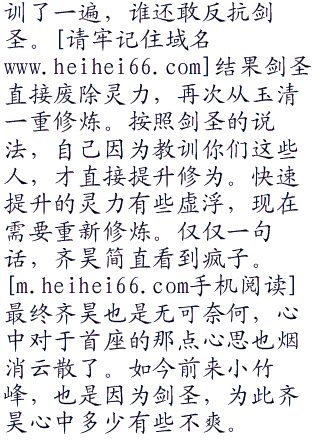 训了一遍，谁还敢反抗剑
圣。[请牢记住域名
www.heihei66.com]结果剑圣
直接废除灵力，再次从玉清
一重修炼。按照剑圣的说
法，自己因为教训你们这些
人，才直接提升修为。快速
提升的灵力有些虚浮，现在
需要重新修炼。仅仅一句
话，齐昊简直看到疯子。
[m.heihei66.com手机阅读]
最终齐昊也是无可奈何，心
中对于首座的那点心思也烟
消云散了。如今前来小竹
峰，也是因为剑圣，为此齐
昊心中多少有些不爽。